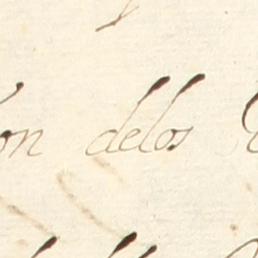 on delos